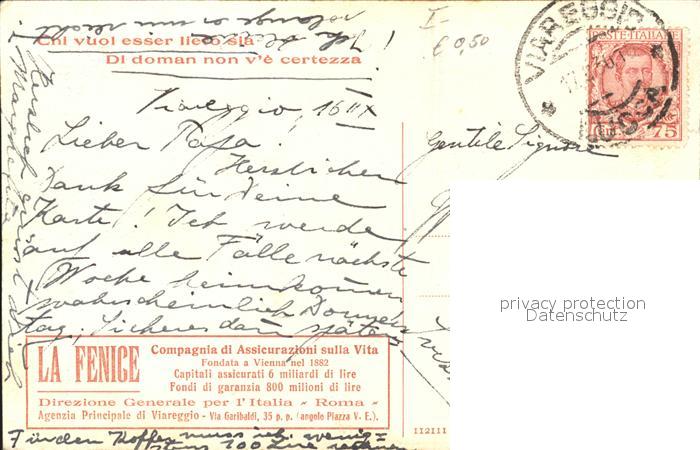 ! Ich bleibe
solange es mir gefällt.
I-
€ 0,50
Chi vuol esser lieto sia
Di doman non v'è certezza
VIAREGGIO
POSTE ITALIANE
Cent 75
Viareggio, 16 IX
Lieber Papa!
Herzlichen
Dank für Deine
Karte! Ich werde
auf alle Fälle nächste
Woche heimkommen
wahrscheinlich Donners
tag, Sicheres dann später.
Gentile Signore
privacy protection
Datenschutz
Herzlich grüsst Dich
LA FENICE
Compagnia di Assicurazioni sulla Vita
Fondata a Vienna nel 1882
Capitali assicurati 6 miliardi di lire
Fondi di garanzia 800 milioni di lire
Direzione Generale per l'Italia - Roma -
Agenzia Principale di Viareggio - Via Garibaldi, 35 p. p. (angolo Piazza V. E.).
112111
Für den Koffer muss ich wenig=
stens 100 Lire rechnen